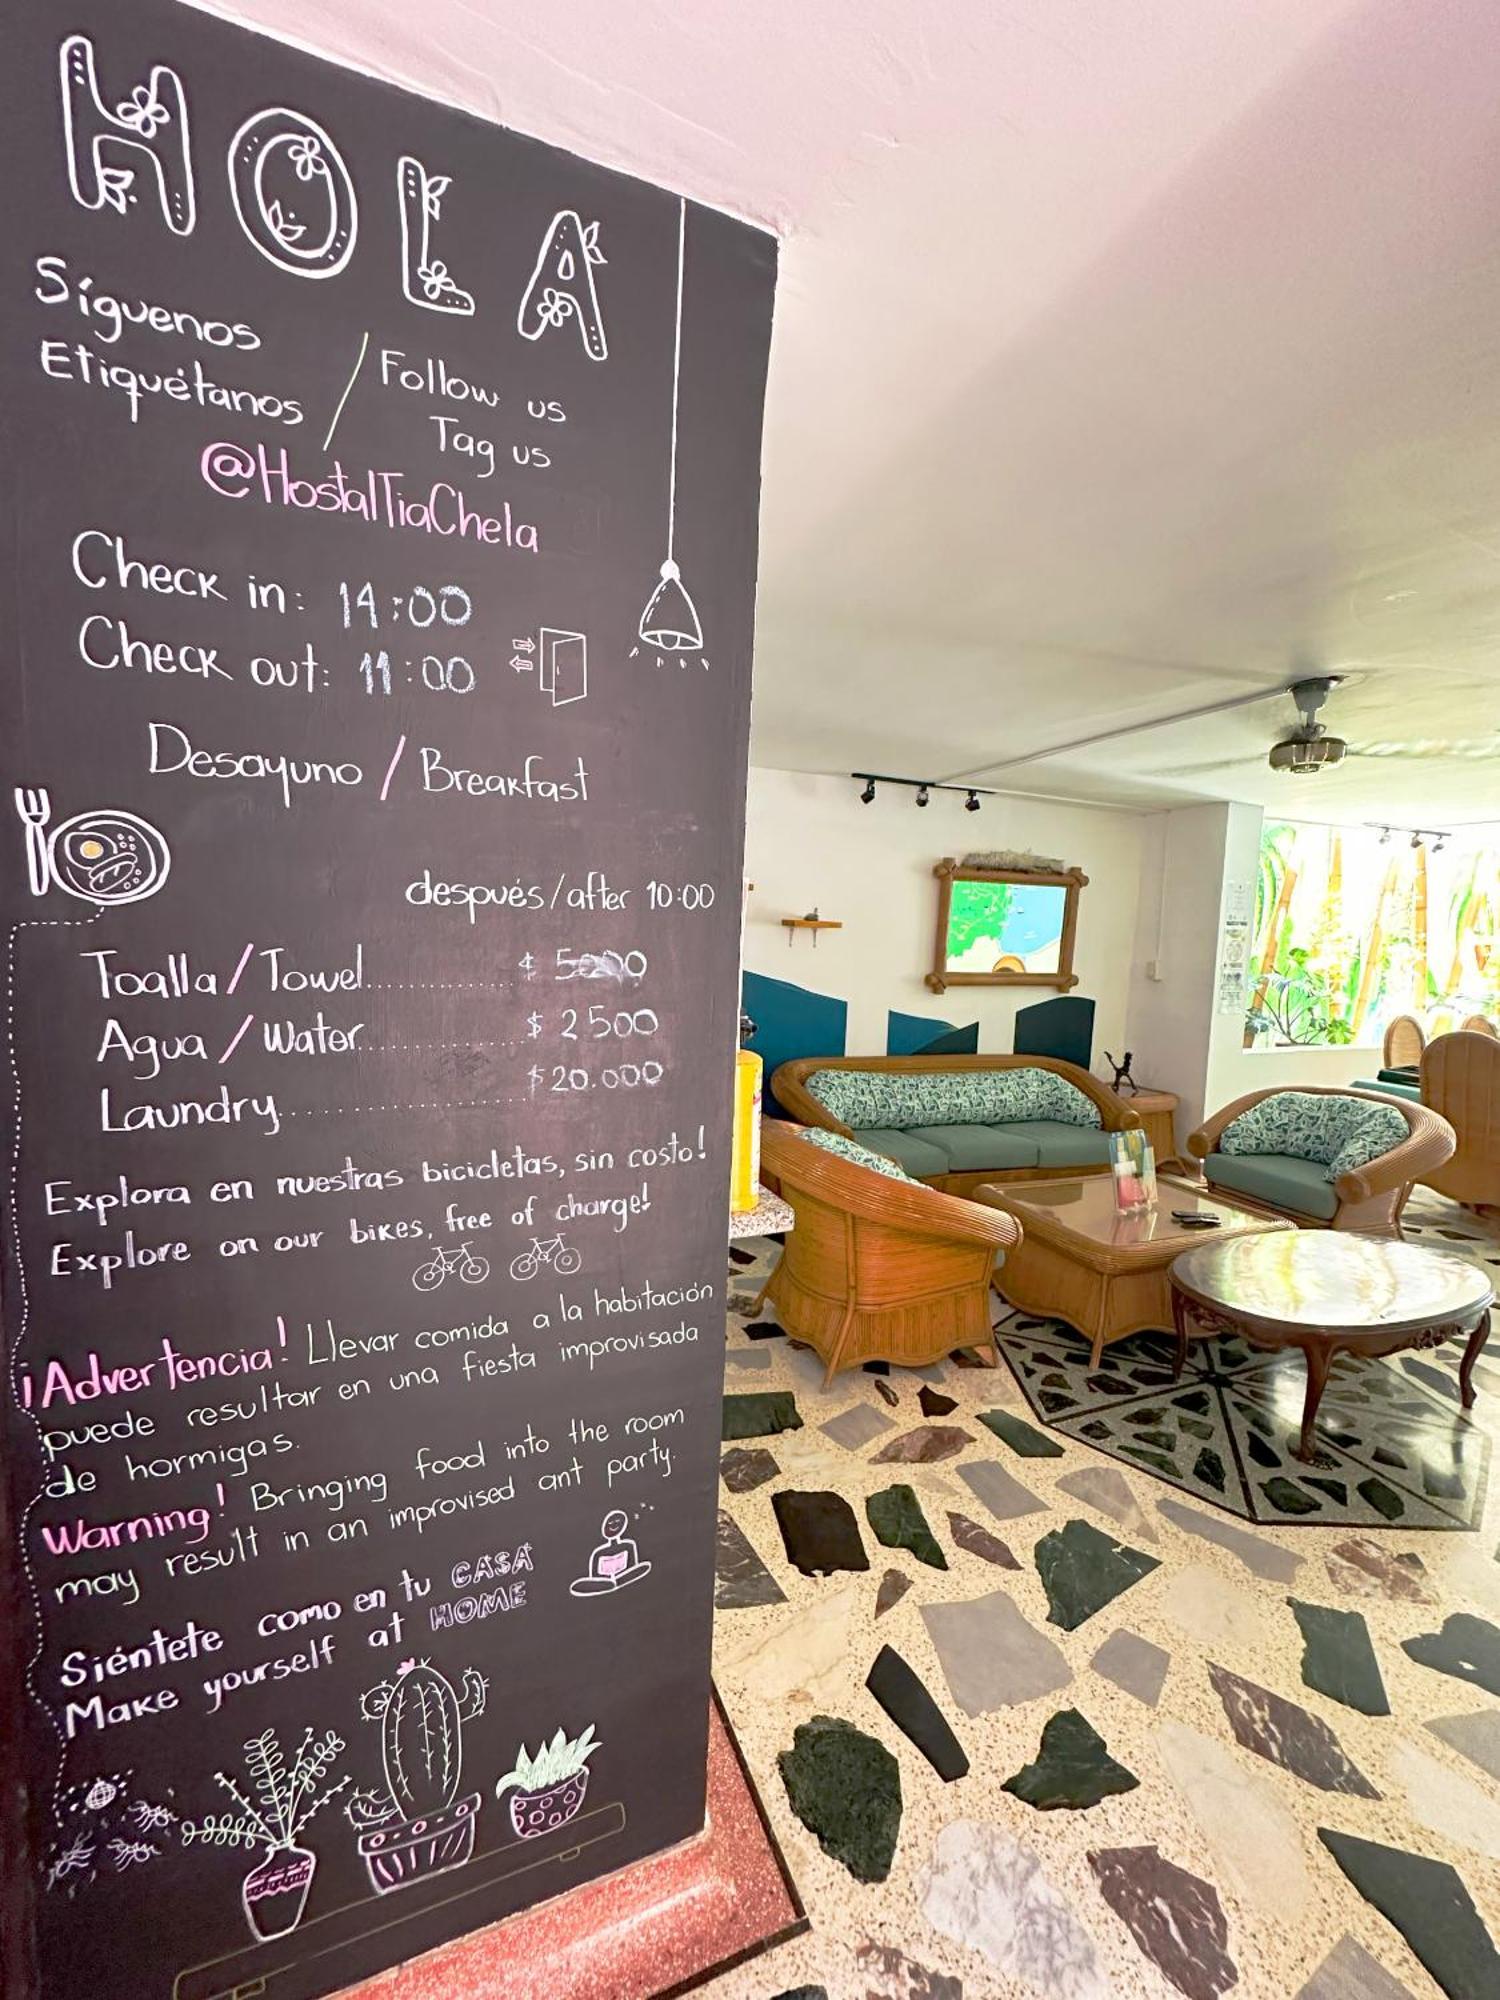 HOLA
Síguenos / Follow us
Etiquétanos Tag us
@HostalTiaChela
Check in: 14:00
Check out: 11:00
Desayuno / Breakfast
después/after 10:00
Toalla/Towel.............. $ 5000
Agua/Water.............. $ 2500
Laundry.................... $20.000
Explora en nuestras bicicletas, sin costo!
Explore on our bikes, free of charge!
¡Advertencia! Llevar comida a la habitación
puede resultar en una fiesta improvisada
de hormigas.
Warning! Bringing food into the room
may result in an improvised ant party.
Siéntete como en tu CASA
Make yourself at HOME